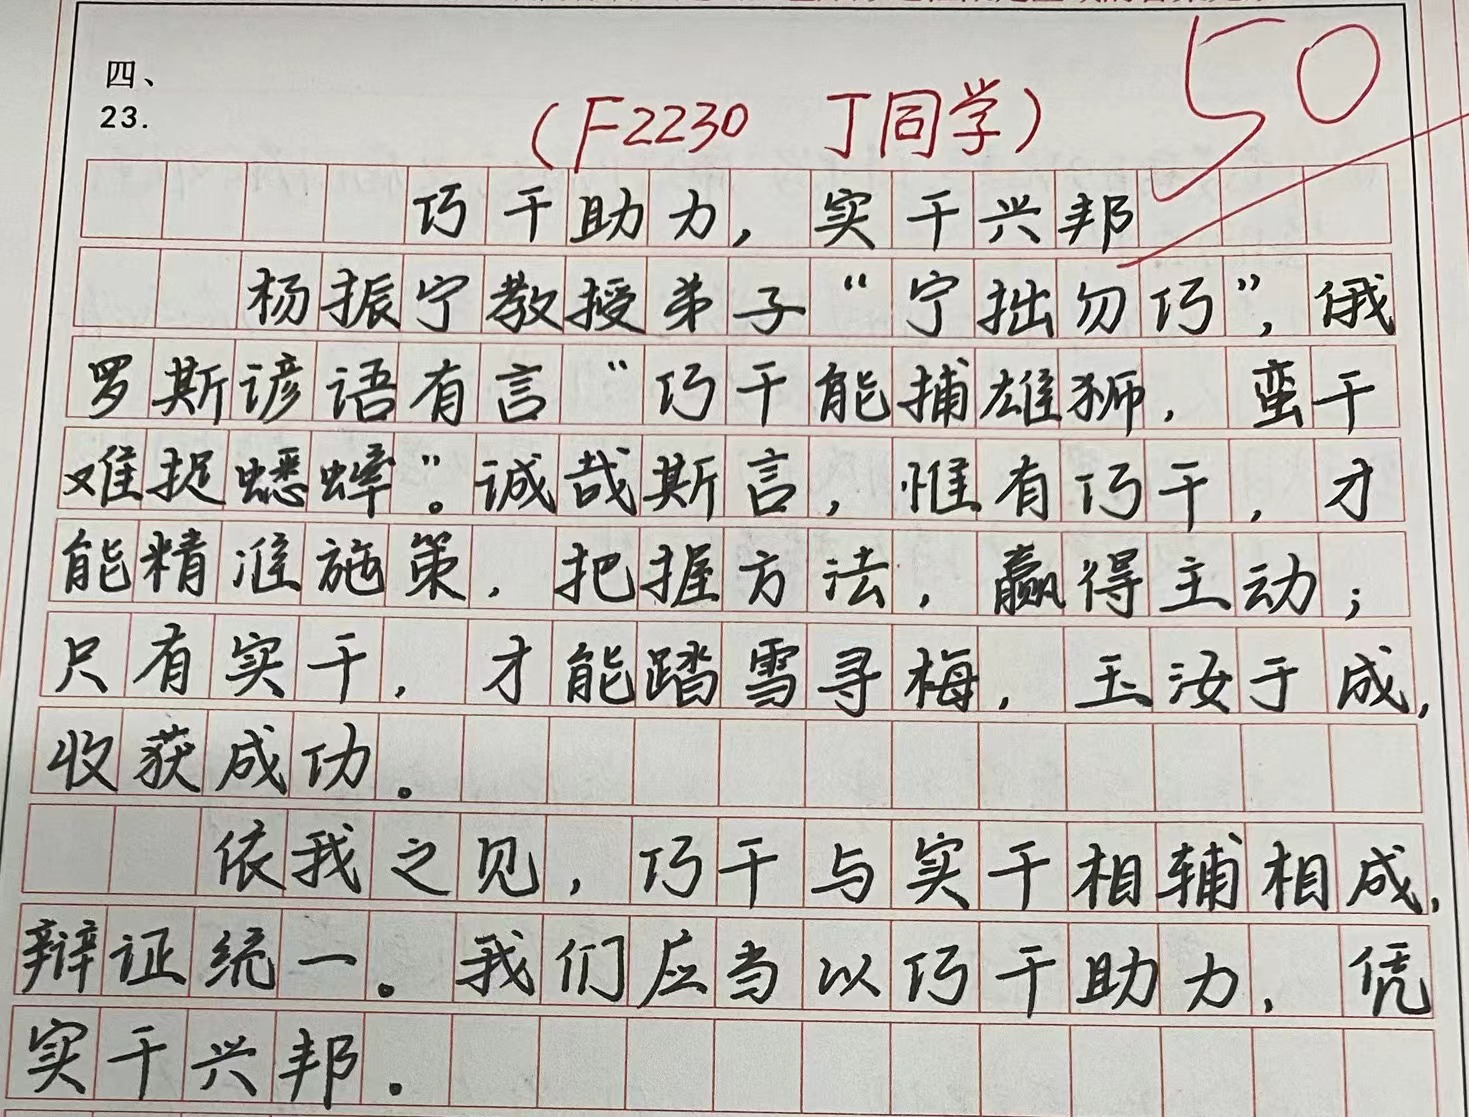 四、
23.
(F2230 丁同学)
50
巧干助力，实干兴邦
杨振宁教授弟子“宁拙勿巧”，俄
罗斯谚语有言“巧干能捕雄狮，蛮干
难捉蟋蟀”。诚哉斯言，惟有巧干，才
能精准施策，把握方法，赢得主动；
只有实干，才能踏雪寻梅，玉汝于成，
收获成功。
依我之见，巧干与实干相辅相成，
辩证统一。我们应当以巧干助力，凭
实干兴邦。